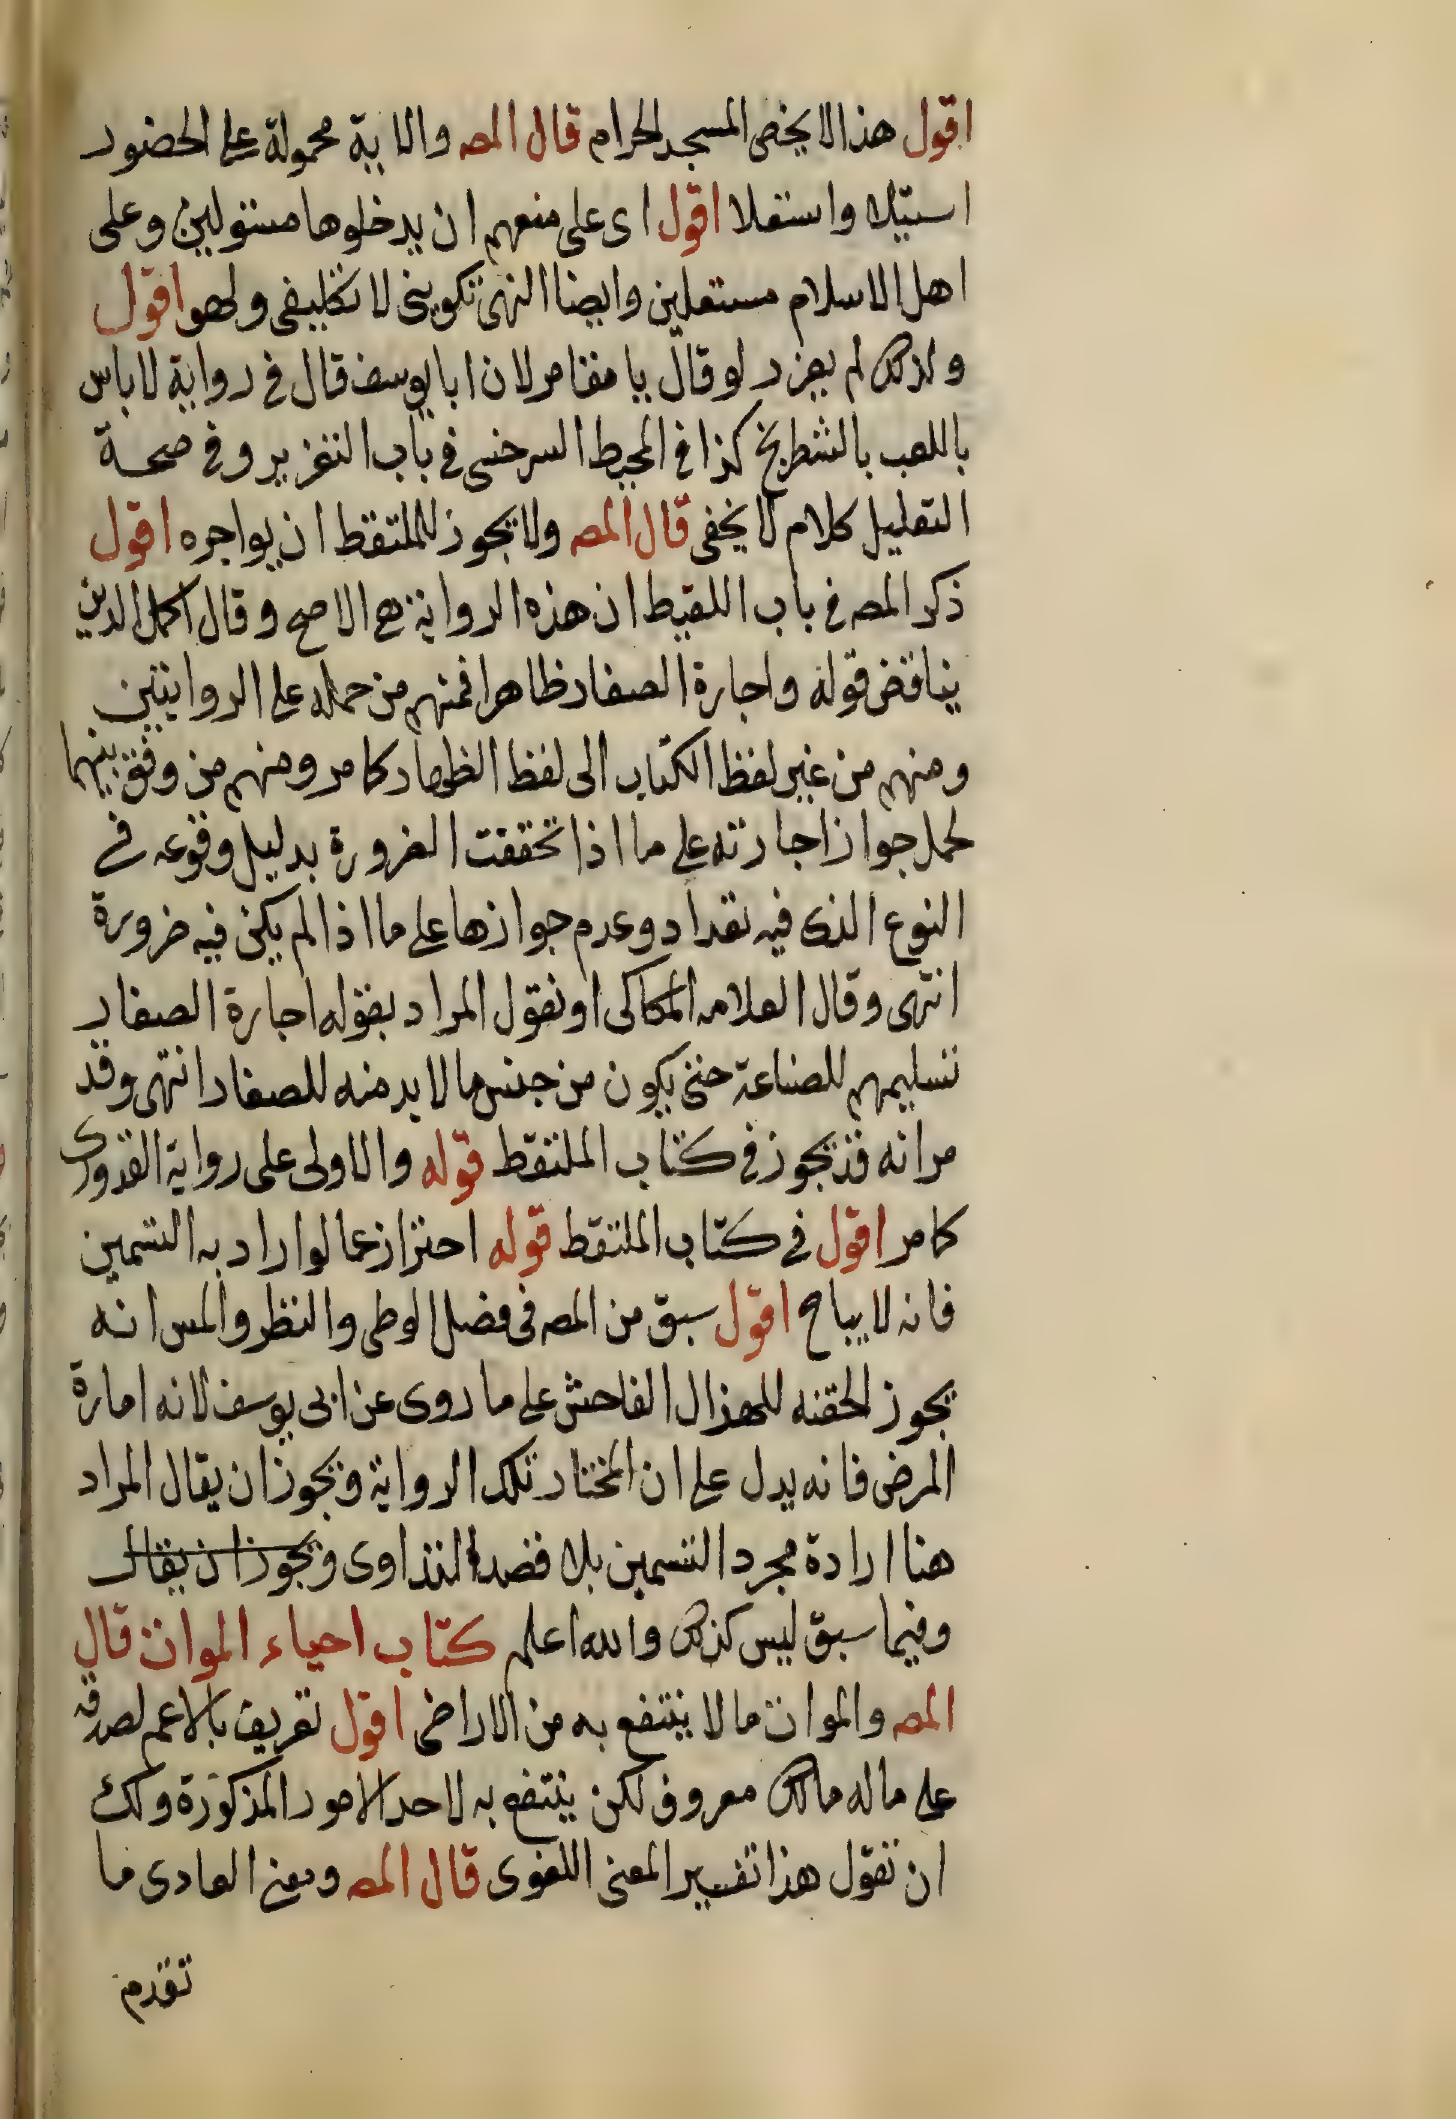 اقول هذا لا يخص المسجد الحرام قال المص والاية محمولة على الحضور
استيلا واستعلا اقول اى على منعهم ان يدخلوها مستولين وعلى
اهل الاسلام مستعلين وايضا النهى تكوينى لا تكليفى ولهو اقول
ولذلك لم يعزر لو قال يا مقامر لان ابا يوسف قال فى رواية لا باس
باللعب بالشطرنج كذا فى المحيط السرخسى فى باب التعزير وفى صحة
التعليل كلام لا يخفى قال المص ولا يجوز للملتقط ان يواجره اقول
ذكر المص فى باب اللقيط ان هذه الرواية هى الاصح وقال اكمل الدين
يناقض قوله واجارة الصغار ظاهرا فمنهم من حمله على الروايتين
ومنهم من غير لفظ الكتاب الى لفظ الظهار كما مر ومنهم من وفق بينهما
لحمل جواز اجارته على ما اذا تحققت الضرورة بدليل وقوعه فى
النوع الذى فيه تعداد وعدم جوازها على ما اذا لم يكن فيه ضرورة
انتهى وقال العلامه الكاكى او نقول المراد بقوله اجارة الصغار
تسليمهم للصناعة حتى يكون من جنس ما لا بد منه للصغار انتهى وقد
مر انه قد يجوز فى كتاب الملتقط قوله والاولى على رواية القدورى
كما مر اقول فى كتاب الملتقط قوله احتراز عما لو اراد به التسمين
فانه لا يباح اقول سبق من المص فى فصل الوطى والنظر والمس انه
يجوز الحقنه للهزال الفاحش على ما روى عن ابى يوسف لانه امارة
المرض فانه يدل على ان المختار تلك الرواية ويجوز ان يقال المراد
هنا ارادة مجرد التسمين بلا قصد التداوى ويجوز ان يقال
وفيما سبق ليس كذلك والله اعلم كتاب احياء الموات قال
المص والموات ما لا ينتفع به من الاراضى اقول تعريف بالاعم لصدقه
على ما له مالك معروف لكن ينتفع به لاحد الامور المذكورة ولك
ان تقول هذا تفسير المعنى اللغوى قال المص ومعنى العادى ما
تقدم